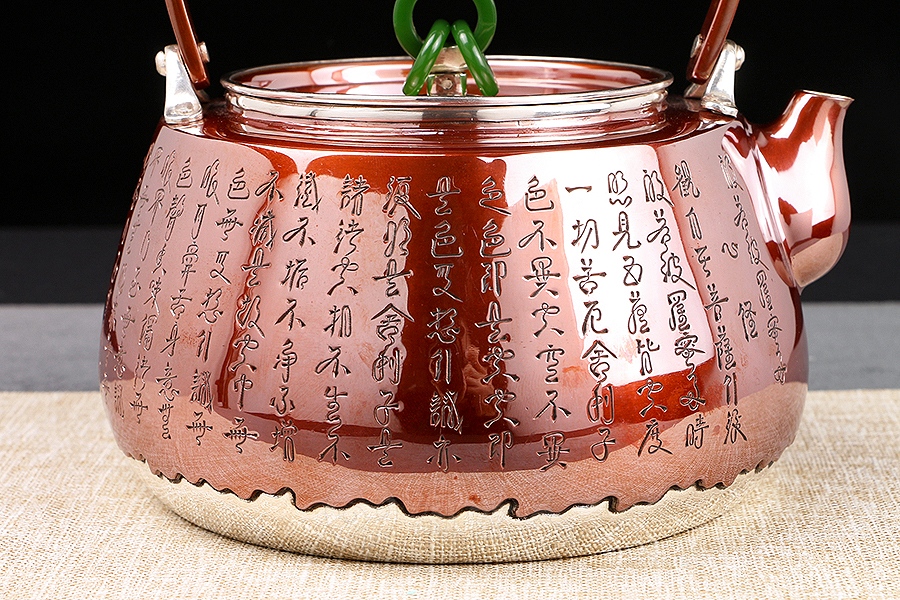 般若波羅蜜多
心經
觀自在菩薩行深
般若波羅蜜多時
照見五蘊皆空度
一切苦厄舍利子
色不異空空不異
色色即是空空即
是色受想行識亦
復如是舍利子是
諸法空相不生不
滅不垢不淨不增
不減是故空中無
色無受想行識無
眼耳鼻舌身意無
色聲香味觸法無